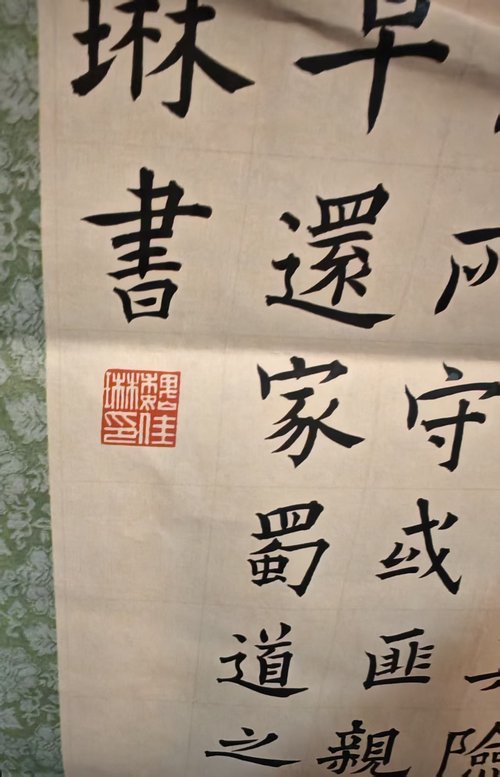 險
守或匪親
早還家蜀道之
琳書
魏佳琳印